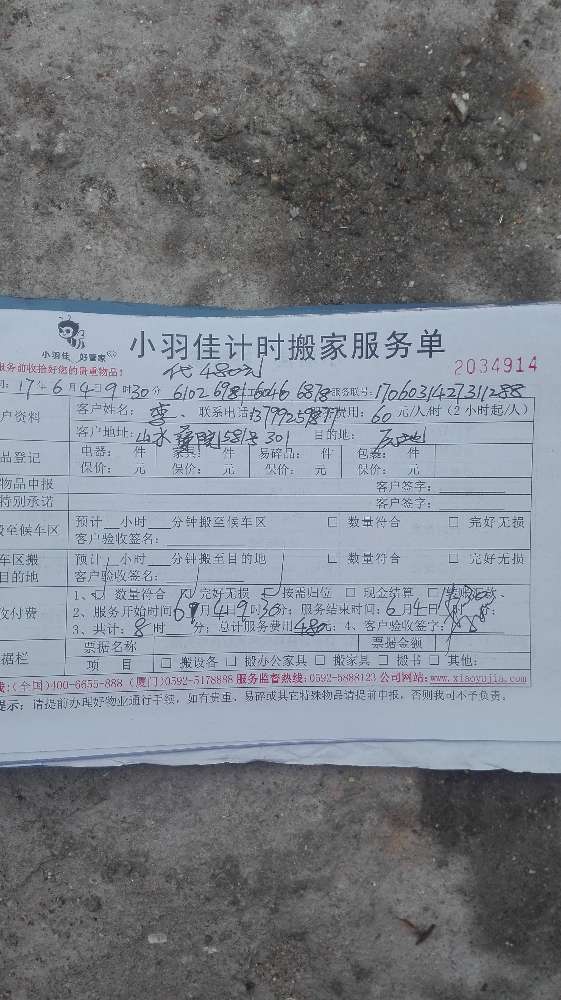 小羽佳 好管家
小羽佳计时搬家服务单
服务前收拾好您的贵重物品!
代480元
2034914
17年6月4日9时30分 6102 6981 6046 6878 服务联号: 1706031427311288
户资料 客户姓名: 李 联系电话: 费用: 60元/人/时 (2小时起/人)
客户地址: 山水 301 目的地:
品登记 电器: 件 家具: 件 易碎品: 件 包装: 件
保价: 元 保价: 元 保价: 元 保价: 元
物品申报 客户签字:
特别承诺 客户签字:
搬至候车区 预计 小时 分钟搬至候车区 □ 数量符合 □ 完好无损
客户验收签名:
车区搬 预计 小时 分钟搬至目的地 □ 数量符合 □ 完好无损
目的地 客户验收签名:
1、 数量符合 完好无损 按需归位 □ 现金结算 □
付费 2、服务开始时间: 6月4日9时30分; 服务结束时间: 6月4日
3、共计: 8时 分; 总计服务费用480元; 4、客户验收签字:
据栏 票据名称 票据金额
项 目 □ 搬设备 □ 搬办公家具 □ 搬家具 □ 搬书 □ 其他:
(全国)400-6655-888 (厦门)0592-5178888 服务监督热线:0592-5888123 公司网站:www.xiaoyujia.com
提示: 请提前办理好物业通行手续, 如有贵重、易碎或其它特殊物品请提前申报, 否则我司不予负责。